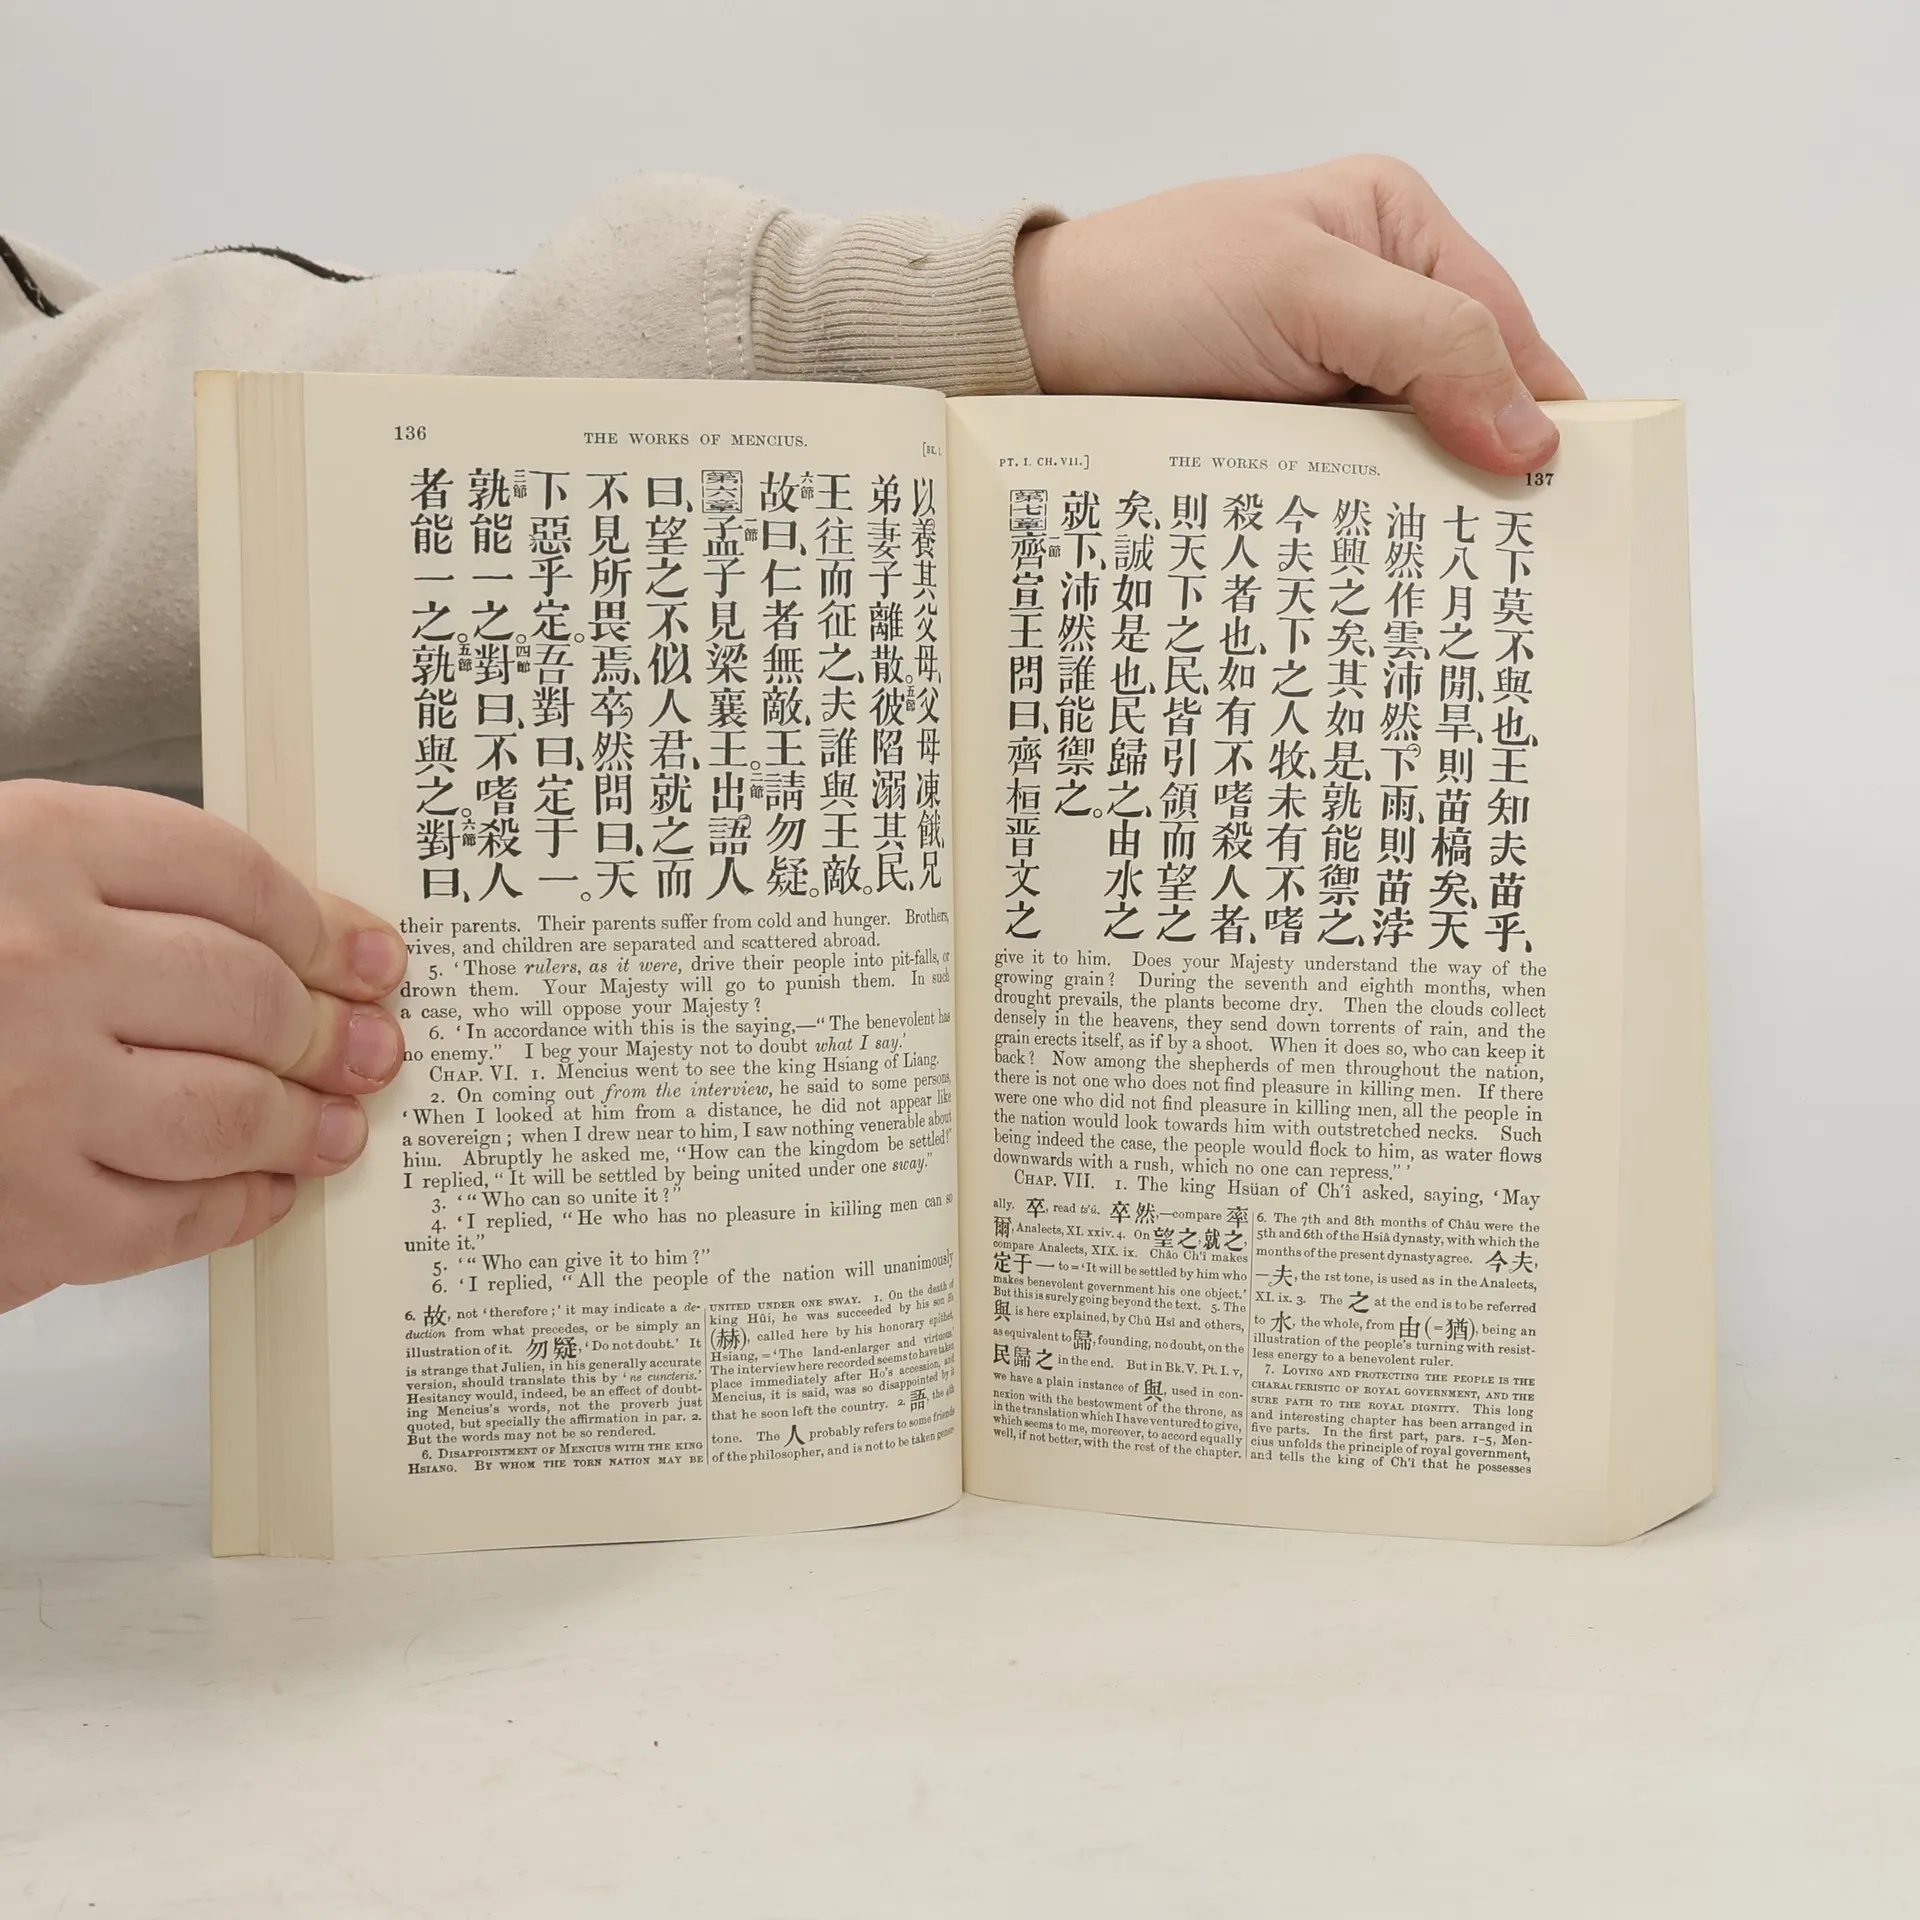 136
THE WORKS OF MENCIUS.
[BK. I.
以養其父母、父母凍餓、兄
弟妻子離散。五節彼陷溺其民、
王往而征之、夫誰與王敵。
六節故曰、仁者無敵、王請勿疑。
第六章一節孟子見梁襄王。二節出語人
曰、望之不似人君、就之而
不見所畏焉、卒然問曰、天
下惡乎定。吾對曰、定于一。
三節孰能一之。四節對曰、不嗜殺人
者能一之。五節孰能與之。六節對曰、
their parents. Their parents suffer from cold and hunger. Brothers,
wives, and children are separated and scattered abroad.
5. ‘Those rulers, as it were, drive their people into pit-falls, or
drown them. Your Majesty will go to punish them. In such
a case, who will oppose your Majesty?
6. ‘In accordance with this is the saying,—“The benevolent has
no enemy.” I beg your Majesty not to doubt what I say.’
CHAP. VI. 1. Mencius went to see the king Hsiang of Liang.
2. On coming out from the interview, he said to some persons,
‘When I looked at him from a distance, he did not appear like
a sovereign; when I drew near to him, I saw nothing venerable about
him. Abruptly he asked me, “How can the kingdom be settled?”
I replied, “It will be settled by being united under one sway.”
3. ‘“Who can so unite it?”
4. ‘I replied, “He who has no pleasure in killing men can so
unite it.”
5. ‘“Who can give it to him?”
6. ‘I replied, “All the people of the nation will unanimously
6. 故, not ‘therefore;’ it may indicate a de-
duction from what precedes, or be simply an
illustration of it. 勿疑, ‘Do not doubt.’ It
is strange that Julien, in his generally accurate
version, should translate this by ‘ne cuncteris.’
Hesitancy would, indeed, be an effect of doubt-
ing Mencius's words, not the proverb just
quoted, but specially the affirmation in par. 2.
But the words may not be so rendered.
6. DISAPPOINTMENT OF MENCIUS WITH THE KING
HSIANG. BY WHOM THE TORN NATION MAY BE
UNITED UNDER ONE SWAY. 1. On the death of
king Hûi, he was succeeded by his son Ho
(赫), called here by his honorary epithet,
Hsiang, = ‘The land-enlarger and virtuous.’
The interview here recorded seems to have taken
place immediately after Ho's accession, and
Mencius, it is said, was so disappointed by it
that he soon left the country. 2. 語, the 4th
tone. The 人 probably refers to some friends
of the philosopher, and is not to be taken gener-
PT. I. CH. VII.]
THE WORKS OF MENCIUS.
137
天下莫不與也、王知夫苗乎、
七八月之閒、旱、則苗槁矣、天
油然作雲、沛然下雨、則苗浡
然興之矣、其如是、孰能禦之、
今夫天下之人牧、未有不嗜
殺人者也、如有不嗜殺人者、
則天下之民、皆引領而望之
矣、誠如是也、民歸之、由水之
就下、沛然誰能禦之。
第七章一節齊宣王問曰、齊桓晉文之
give it to him. Does your Majesty understand the way of the
growing grain? During the seventh and eighth months, when
drought prevails, the plants become dry. Then the clouds collect
densely in the heavens, they send down torrents of rain, and the
grain erects itself, as if by a shoot. When it does so, who can keep it
back? Now among the shepherds of men throughout the nation,
there is not one who does not find pleasure in killing men. If there
were one who did not find pleasure in killing men, all the people in
the nation would look towards him with outstretched necks. Such
being indeed the case, the people would flock to him, as water flows
downwards with a rush, which no one can repress.”’
CHAP. VII. 1. The king Hsüan of Ch‘î asked, saying, ‘May
ally. 卒, read ts‘ú. 卒然,—compare 率
爾, Analects, XI. xxiv. 4. On 望之, 就之,
compare Analects, XIX. ix. Châo Ch‘i makes
定于一 to = ‘It will be settled by him who
makes benevolent government his one object.’
But this is surely going beyond the text. 5. The
與 is here explained, by Chû Hsî and others,
as equivalent to 歸, founding, no doubt, on the
民歸之 in the end. But in Bk. V. Pt. I. v,
we have a plain instance of 與, used in con-
nexion with the bestowment of the throne, as
in the translation which I have ventured to give,
which seems to me, moreover, to accord equally
well, if not better, with the rest of the chapter.
6. The 7th and 8th months of Châu were the
5th and 6th of the Hsiâ dynasty, with which the
months of the present dynasty agree. 今夫,
—夫, the 1st tone, is used as in the Analects,
XI. ix. 3. The 之 at the end is to be referred
to 水, the whole, from 由 (=猶), being an
illustration of the people's turning with resist-
less energy to a benevolent ruler.
7. LOVING AND PROTECTING THE PEOPLE IS THE
CHARACTERISTIC OF ROYAL GOVERNMENT, AND THE
SURE PATH TO THE ROYAL DIGNITY. This long
and interesting chapter has been arranged in
five parts. In the first part, pars. 1-5, Men-
cius unfolds the principle of royal government,
and tells the king of Ch‘î that he possesses